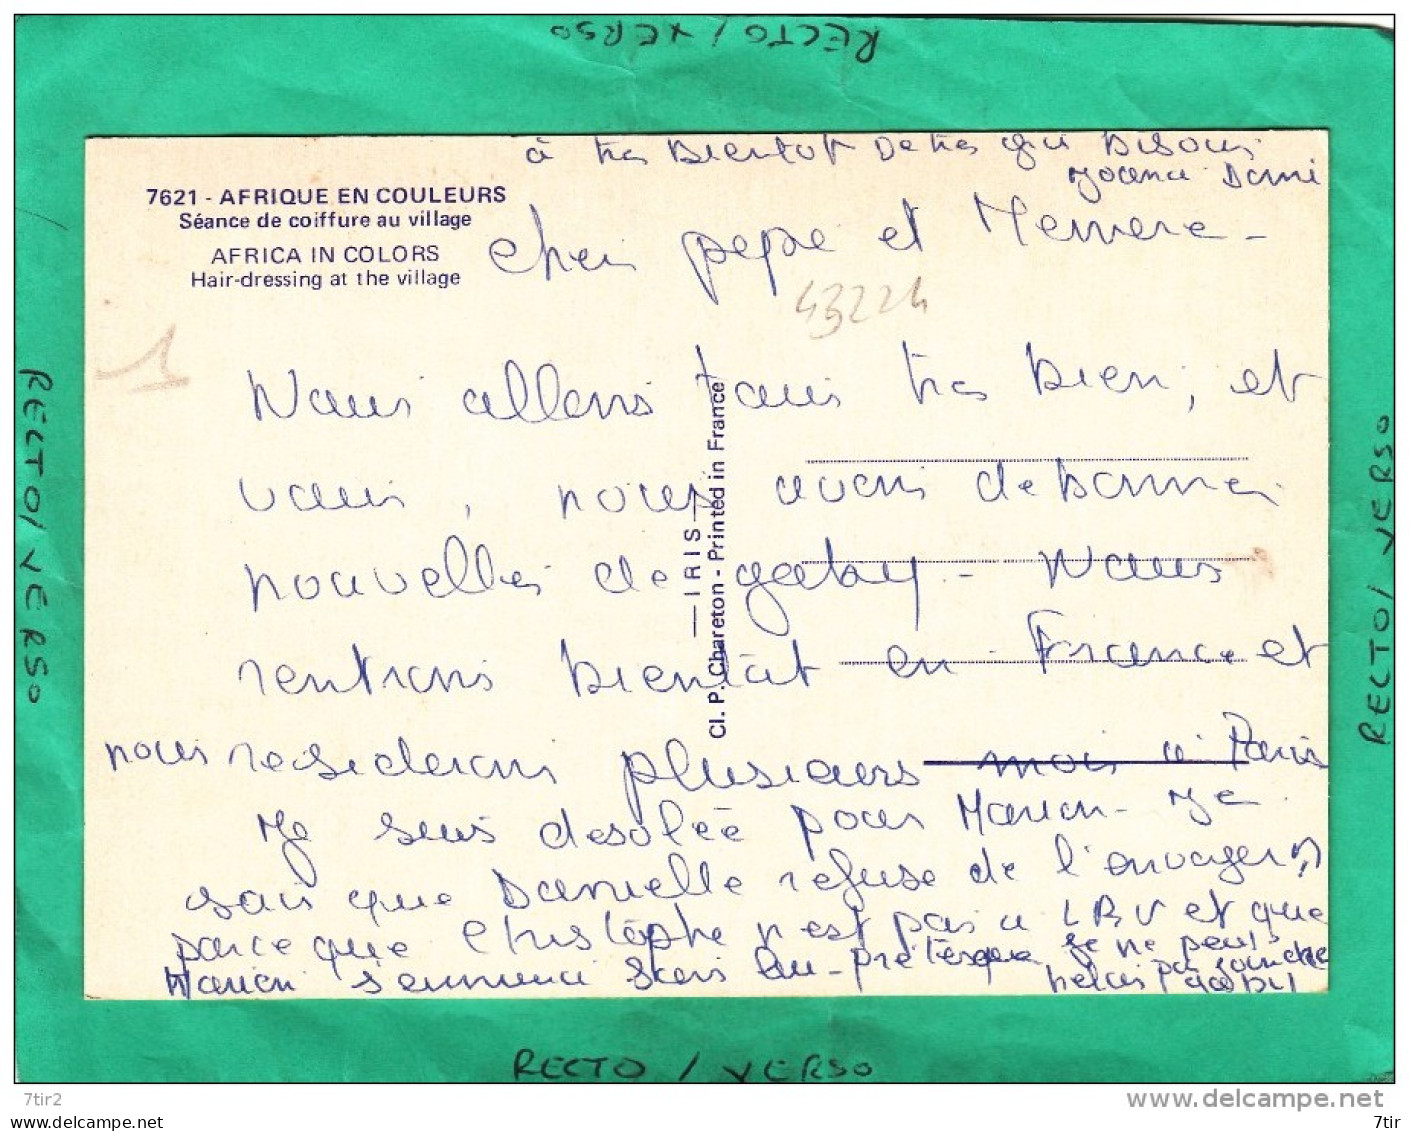 RECTO / VERSO
à tres Bientot De tres gros Bisous
7621 - AFRIQUE EN COULEURS
Séance de coiffure au village
AFRICA IN COLORS
Hair-dressing at the village
Cher pepe et Memere -
43224
1
Nous allons tous tres bien, et
vous, nous avons de bonnes
nouvelles de gaby - Nous
rentrons bientôt en France et
nous residerons plusieurs mois à Paris
Je suis desolée pour Manon - Je
sais que Danielle refuse de l'envoyer
parce que Christophe n'est pas a LBV et que
Manon s'ennuie
IRIS
Cl. P. Chareton - Printed in France
RECTO / VERSO
RECTO / VERSO
RECTO / VERSO
7tir2
www.delcampe.net
7tir